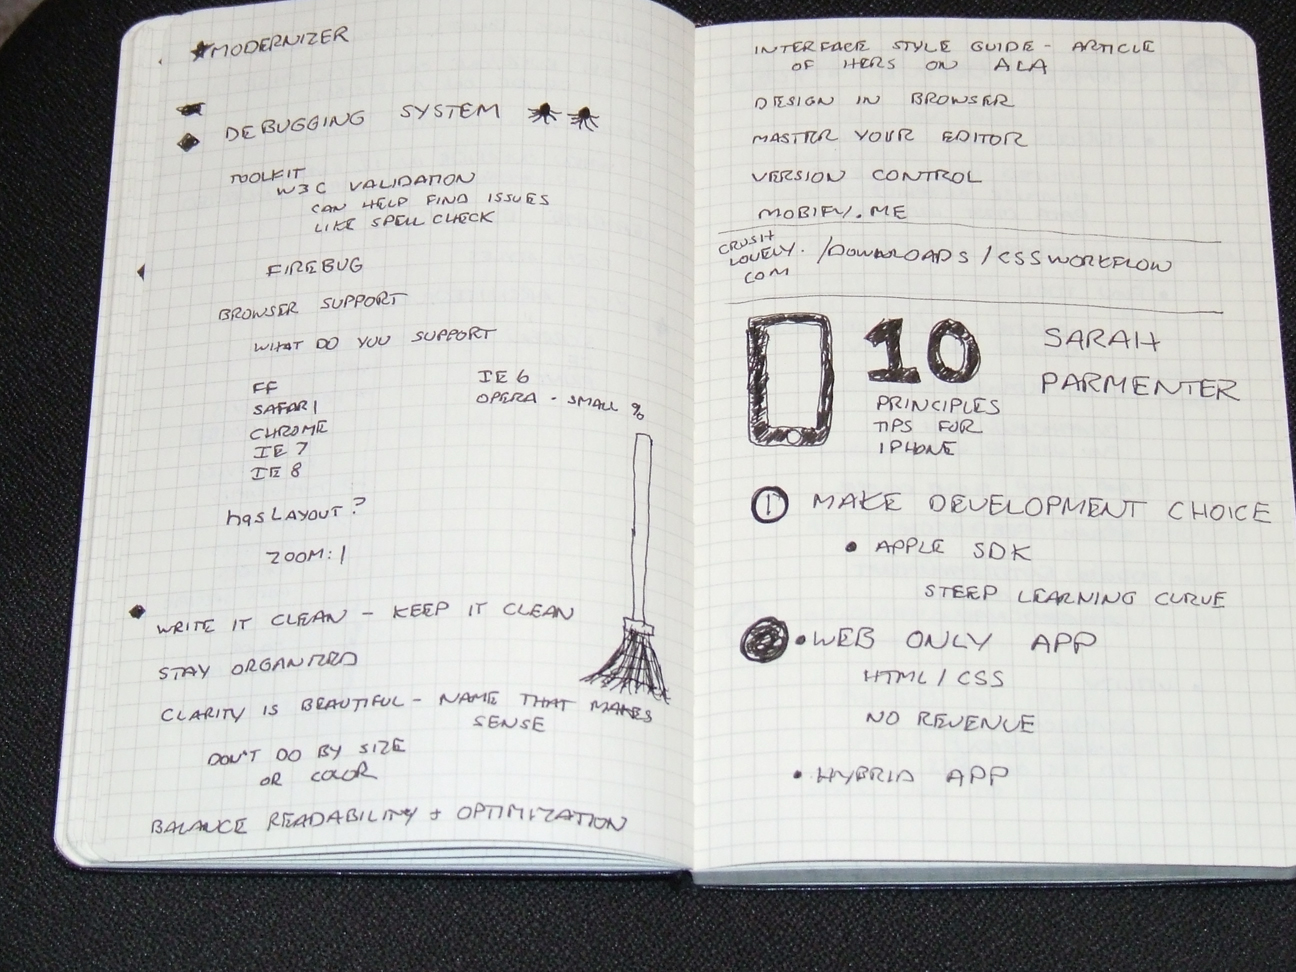 ★MODERNIZER
DEBUGGING SYSTEM
TOOLKIT
W3C VALIDATION
CAN HELP FIND ISSUES
LIKE SPELL CHECK
FIREBUG
BROWSER SUPPORT
WHAT DO YOU SUPPORT
FF
SAFARI
CHROME
IE 7
IE 8
IE 6
OPERA - SMALL %
hasLAYOUT?
ZOOM:1
WRITE IT CLEAN - KEEP IT CLEAN
STAY ORGANIZED
CLARITY IS BEAUTIFUL - NAME THAT MAKES
SENSE
DON'T DO BY SIZE
OR COLOR
BALANCE READABILITY + OPTIMIZATION
INTERFACE STYLE GUIDE - ARTICLE
OF HERS ON ALA
DESIGN IN BROWSER
MASTER YOUR EDITOR
VERSION CONTROL
MOBIFY.ME
CRUSH
LOVELY.
COM
/DOWNLOADS/CSSWORKFLOW
10
PRINCIPLES
TIPS FOR
IPHONE
SARAH
PARMENTER
1 MAKE DEVELOPMENT CHOICE
• APPLE SDK
STEEP LEARNING CURVE
• WEB ONLY APP
HTML/CSS
NO REVENUE
• HYBRID APP